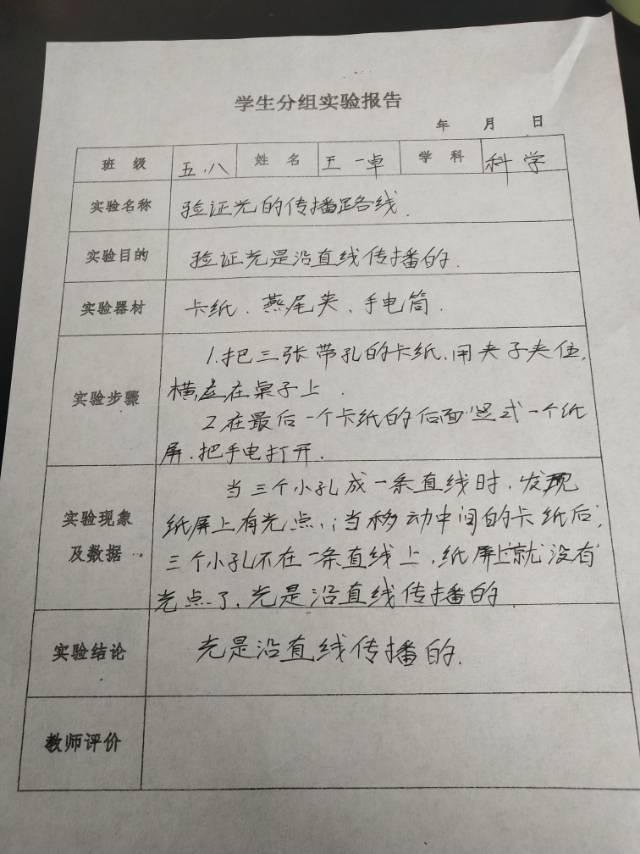 学生分组实验报告
年 月 日
班级 五.八 姓名 王一卓 学科 科学
实验名称 验证光的传播路线.
实验目的 验证光是沿直线传播的.
实验器材 卡纸、燕尾夹、手电筒.
实验步骤
1.把三张带孔的卡纸、用夹子夹住,
横立在桌子上.
2.在最后一个卡纸的后面竖式一个纸
屏.把手电打开.
实验现象
及数据
当三个小孔成一条直线时,发现
纸屏上有光点,;当移动中间的卡纸后,
三个小孔不在一条直线上,纸屏上就没有
光点了,光是沿直线传播的
实验结论 光是沿直线传播的.
教师评价